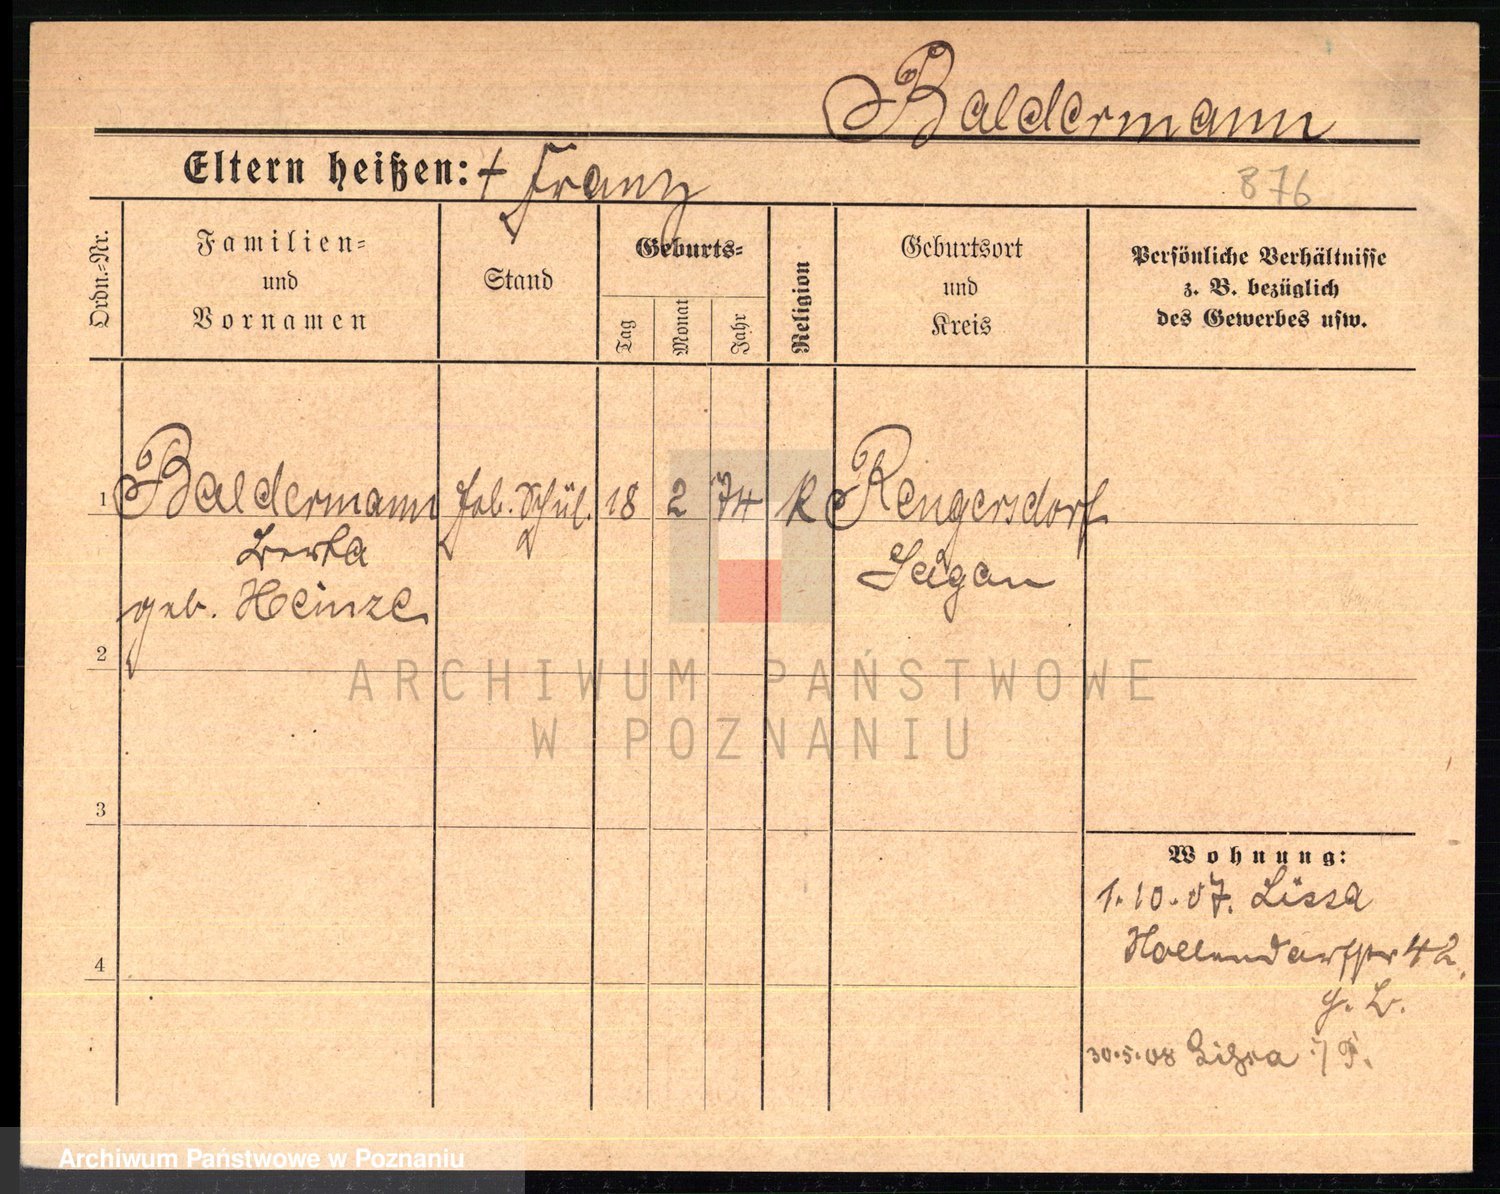 Baldermann
Eltern heißen: + Franz
876
Ordn.-Nr.
Familien-
und
Vornamen
Stand
Geburts-
Tag
Monat
Jahr
Religion
Geburtsort
und
Kreis
Persönliche Verhältnisse
z. B. bezüglich
des Gewerbes usw.
1 Baldermann 18 2 74 K Rengersdorf
Berta Sagan
geb. Heinze
2
3
4
Wohnung:
1.10.07. Lissa
42.
30.5.08 Lissa i/P.
ARCHIWUM PAŃSTWOWE
W POZNANIU
Archiwum Państwowe w Poznaniu